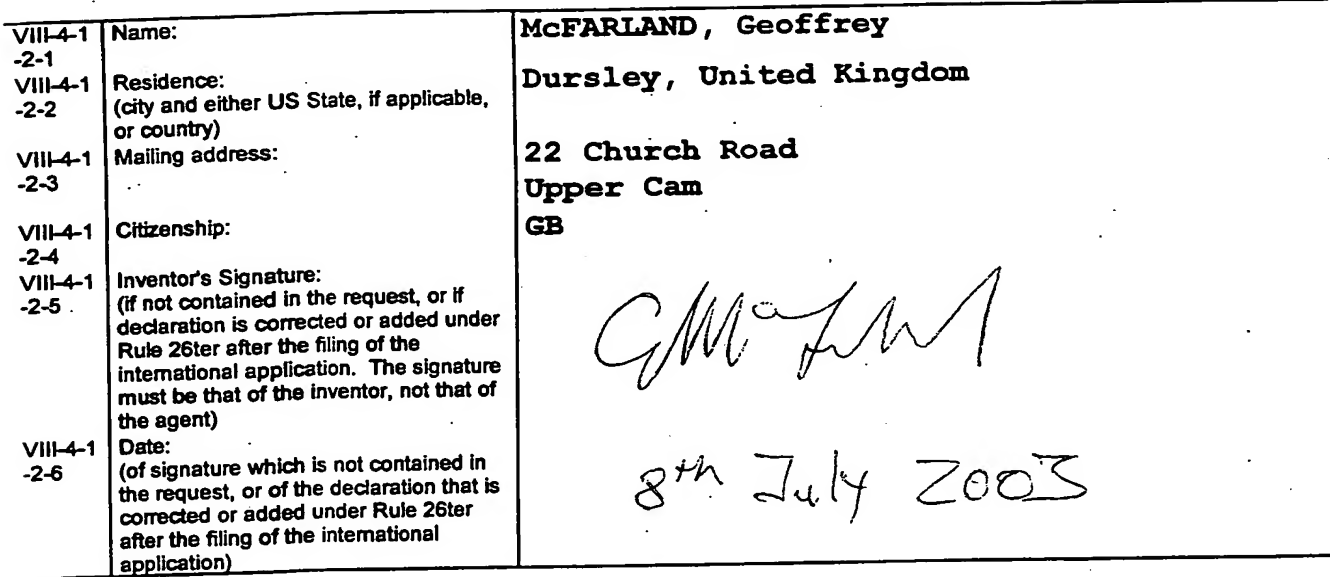 VIII-4-1 Name: McFARLAND, Geoffrey
-2-1
VIII-4-1 Residence: Dursley, United Kingdom
-2-2 (city and either US State, if applicable,
or country)
VIII-4-1 Mailing address: 22 Church Road
-2-3 Upper Cam
VIII-4-1 Citizenship: GB
-2-4
VIII-4-1 Inventor's Signature:
-2-5 (if not contained in the request, or if
declaration is corrected or added under
Rule 26ter after the filing of the
international application. The signature
must be that of the inventor, not that of
the agent)
VIII-4-1 Date:
-2-6 (of signature which is not contained in
the request, or of the declaration that is
corrected or added under Rule 26ter
after the filing of the international
application)
8th July 2003